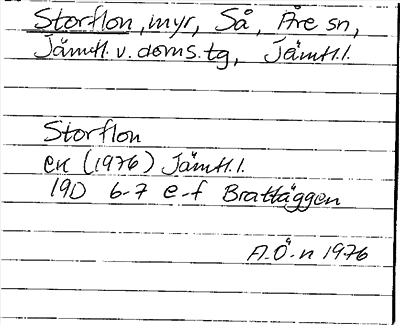 Storflon, myr, Så, Åre sn,
Jämtl. v. doms.tg, Jämtl.l.
Storflon
ek (1976) Jämtl.l.
19D 6-7 e-f Brattäggen
A-Ö-n 1976